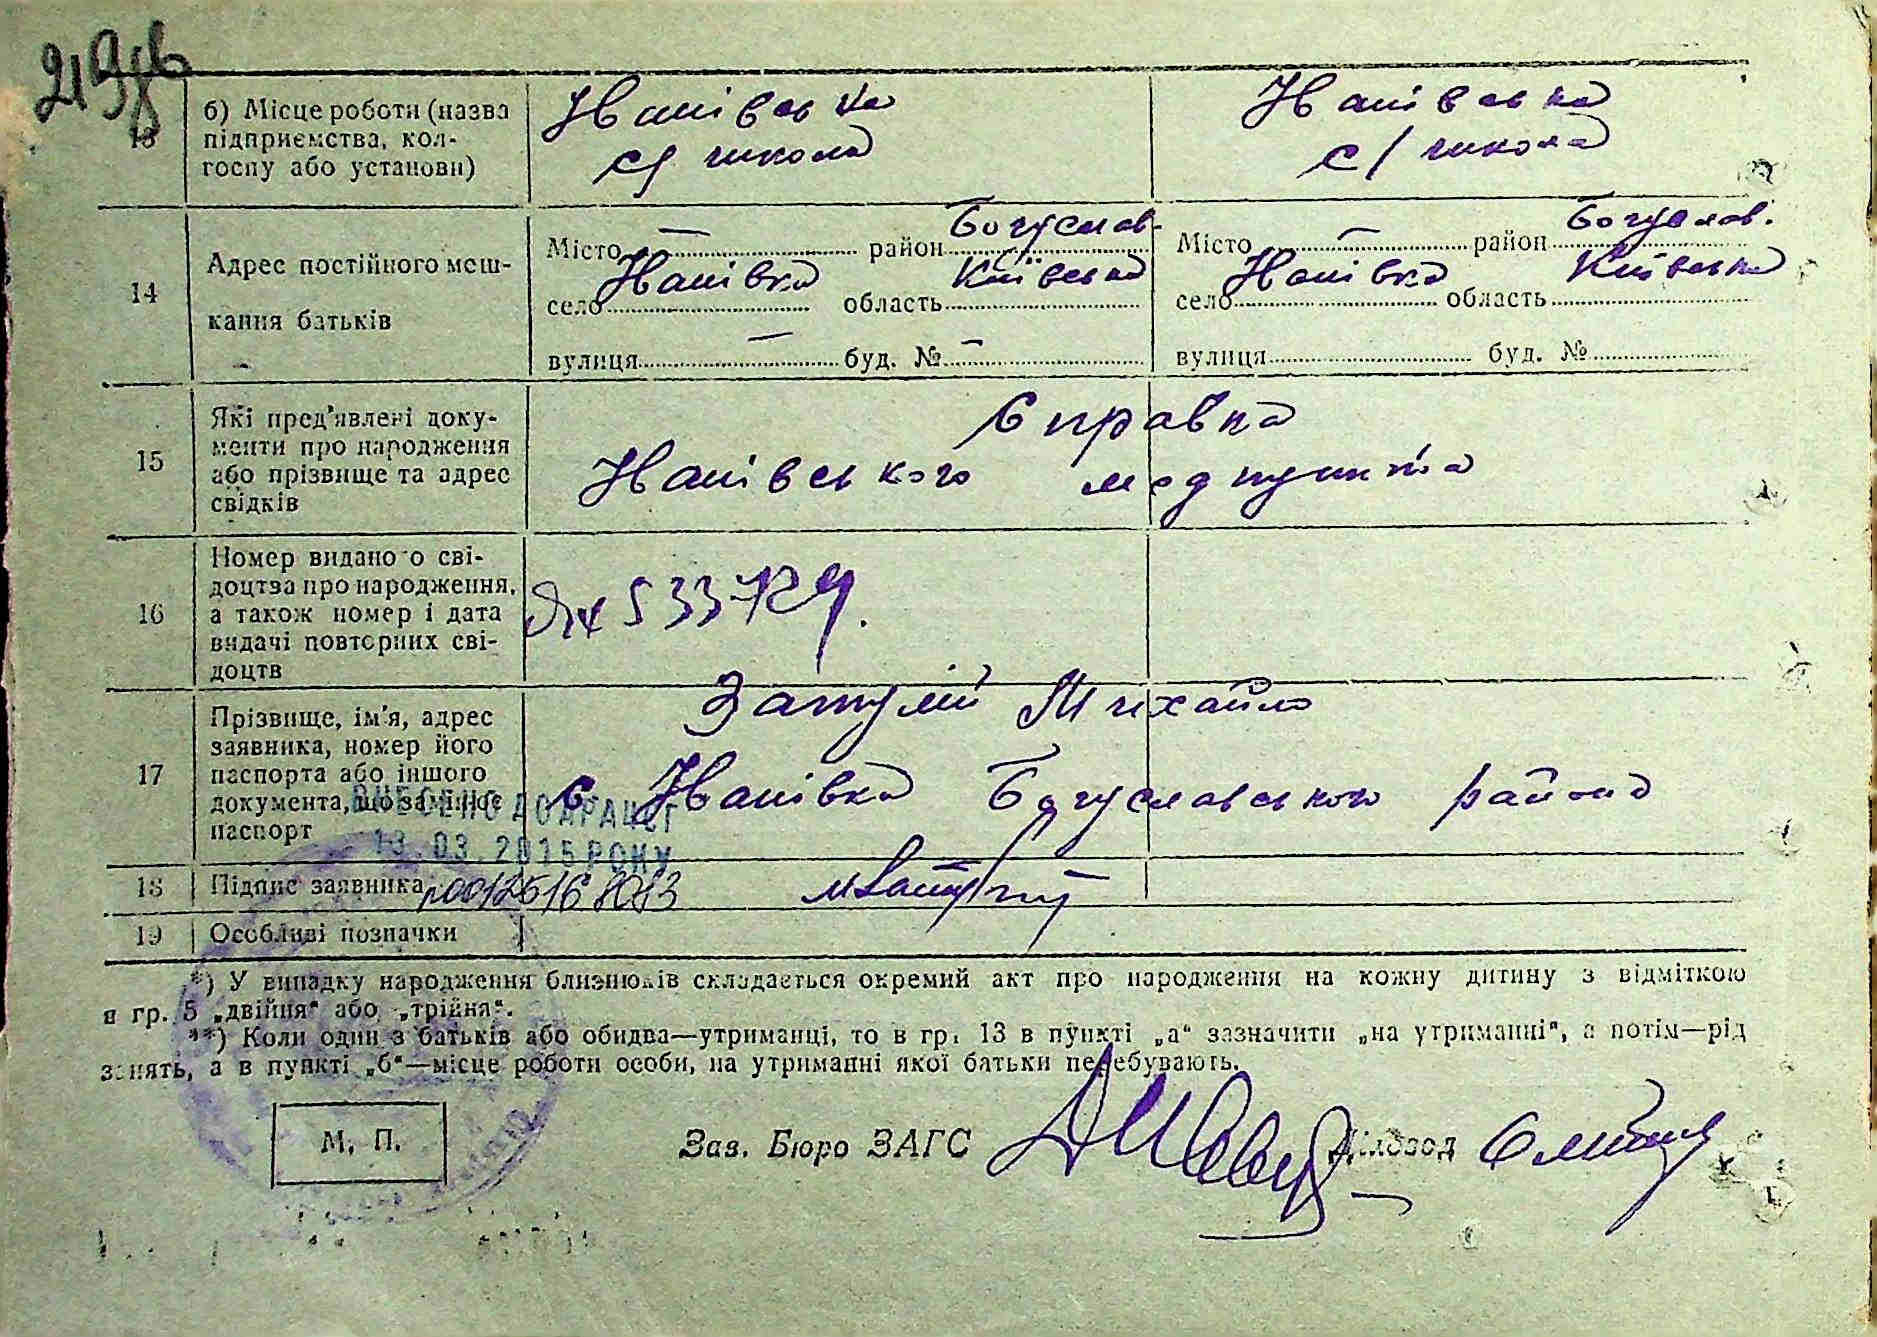 219зв
13
б) Місце роботи (назва
підприємства, кол-
госпу або установи)
Іванівська
с/ школа
Іванівська
с/ школа
14
Адрес постійного меш-
кання батьків
Місто — район Богуслав.
село Іванівка область Київська
вулиця — буд. № —
Місто — район Богуслав.
село Іванівка область Київська
вулиця буд. №
15
Які пред'явлені доку-
менти про народження
або прізвище та адрес
свідків
Справка
Іванівського медпункта
16
Номер видано о сві-
доцтва про народження,
а також номер і дата
видачі повторних сві-
доцтв
533729.
17
Прізвище, ім'я, адрес
заявника, номер його
паспорта або іншого
документа, що замінює
паспорт
Затулій Михайло
с. Іванівка Богуславського района
ВНЕСЕНО ДО ДРАЦСГ
13.03.2015 РОКУ
18
Підпис заявника
19
Особливі позначки
*) У випадку народження близнюків складається окремий акт про народження на кожну дитину з відміткою
в гр. 5 „двійня“ або „трійня“.
**) Коли один з батьків або обидва—утриманці, то в гр. 13 в пункті „а“ зазначити „на утриманні“, а потім—рід
занять, а в пункті „б“—місце роботи особи, на утриманні якої батьки перебувають.
М. П.
Зав. Бюро ЗАГС
Діловод